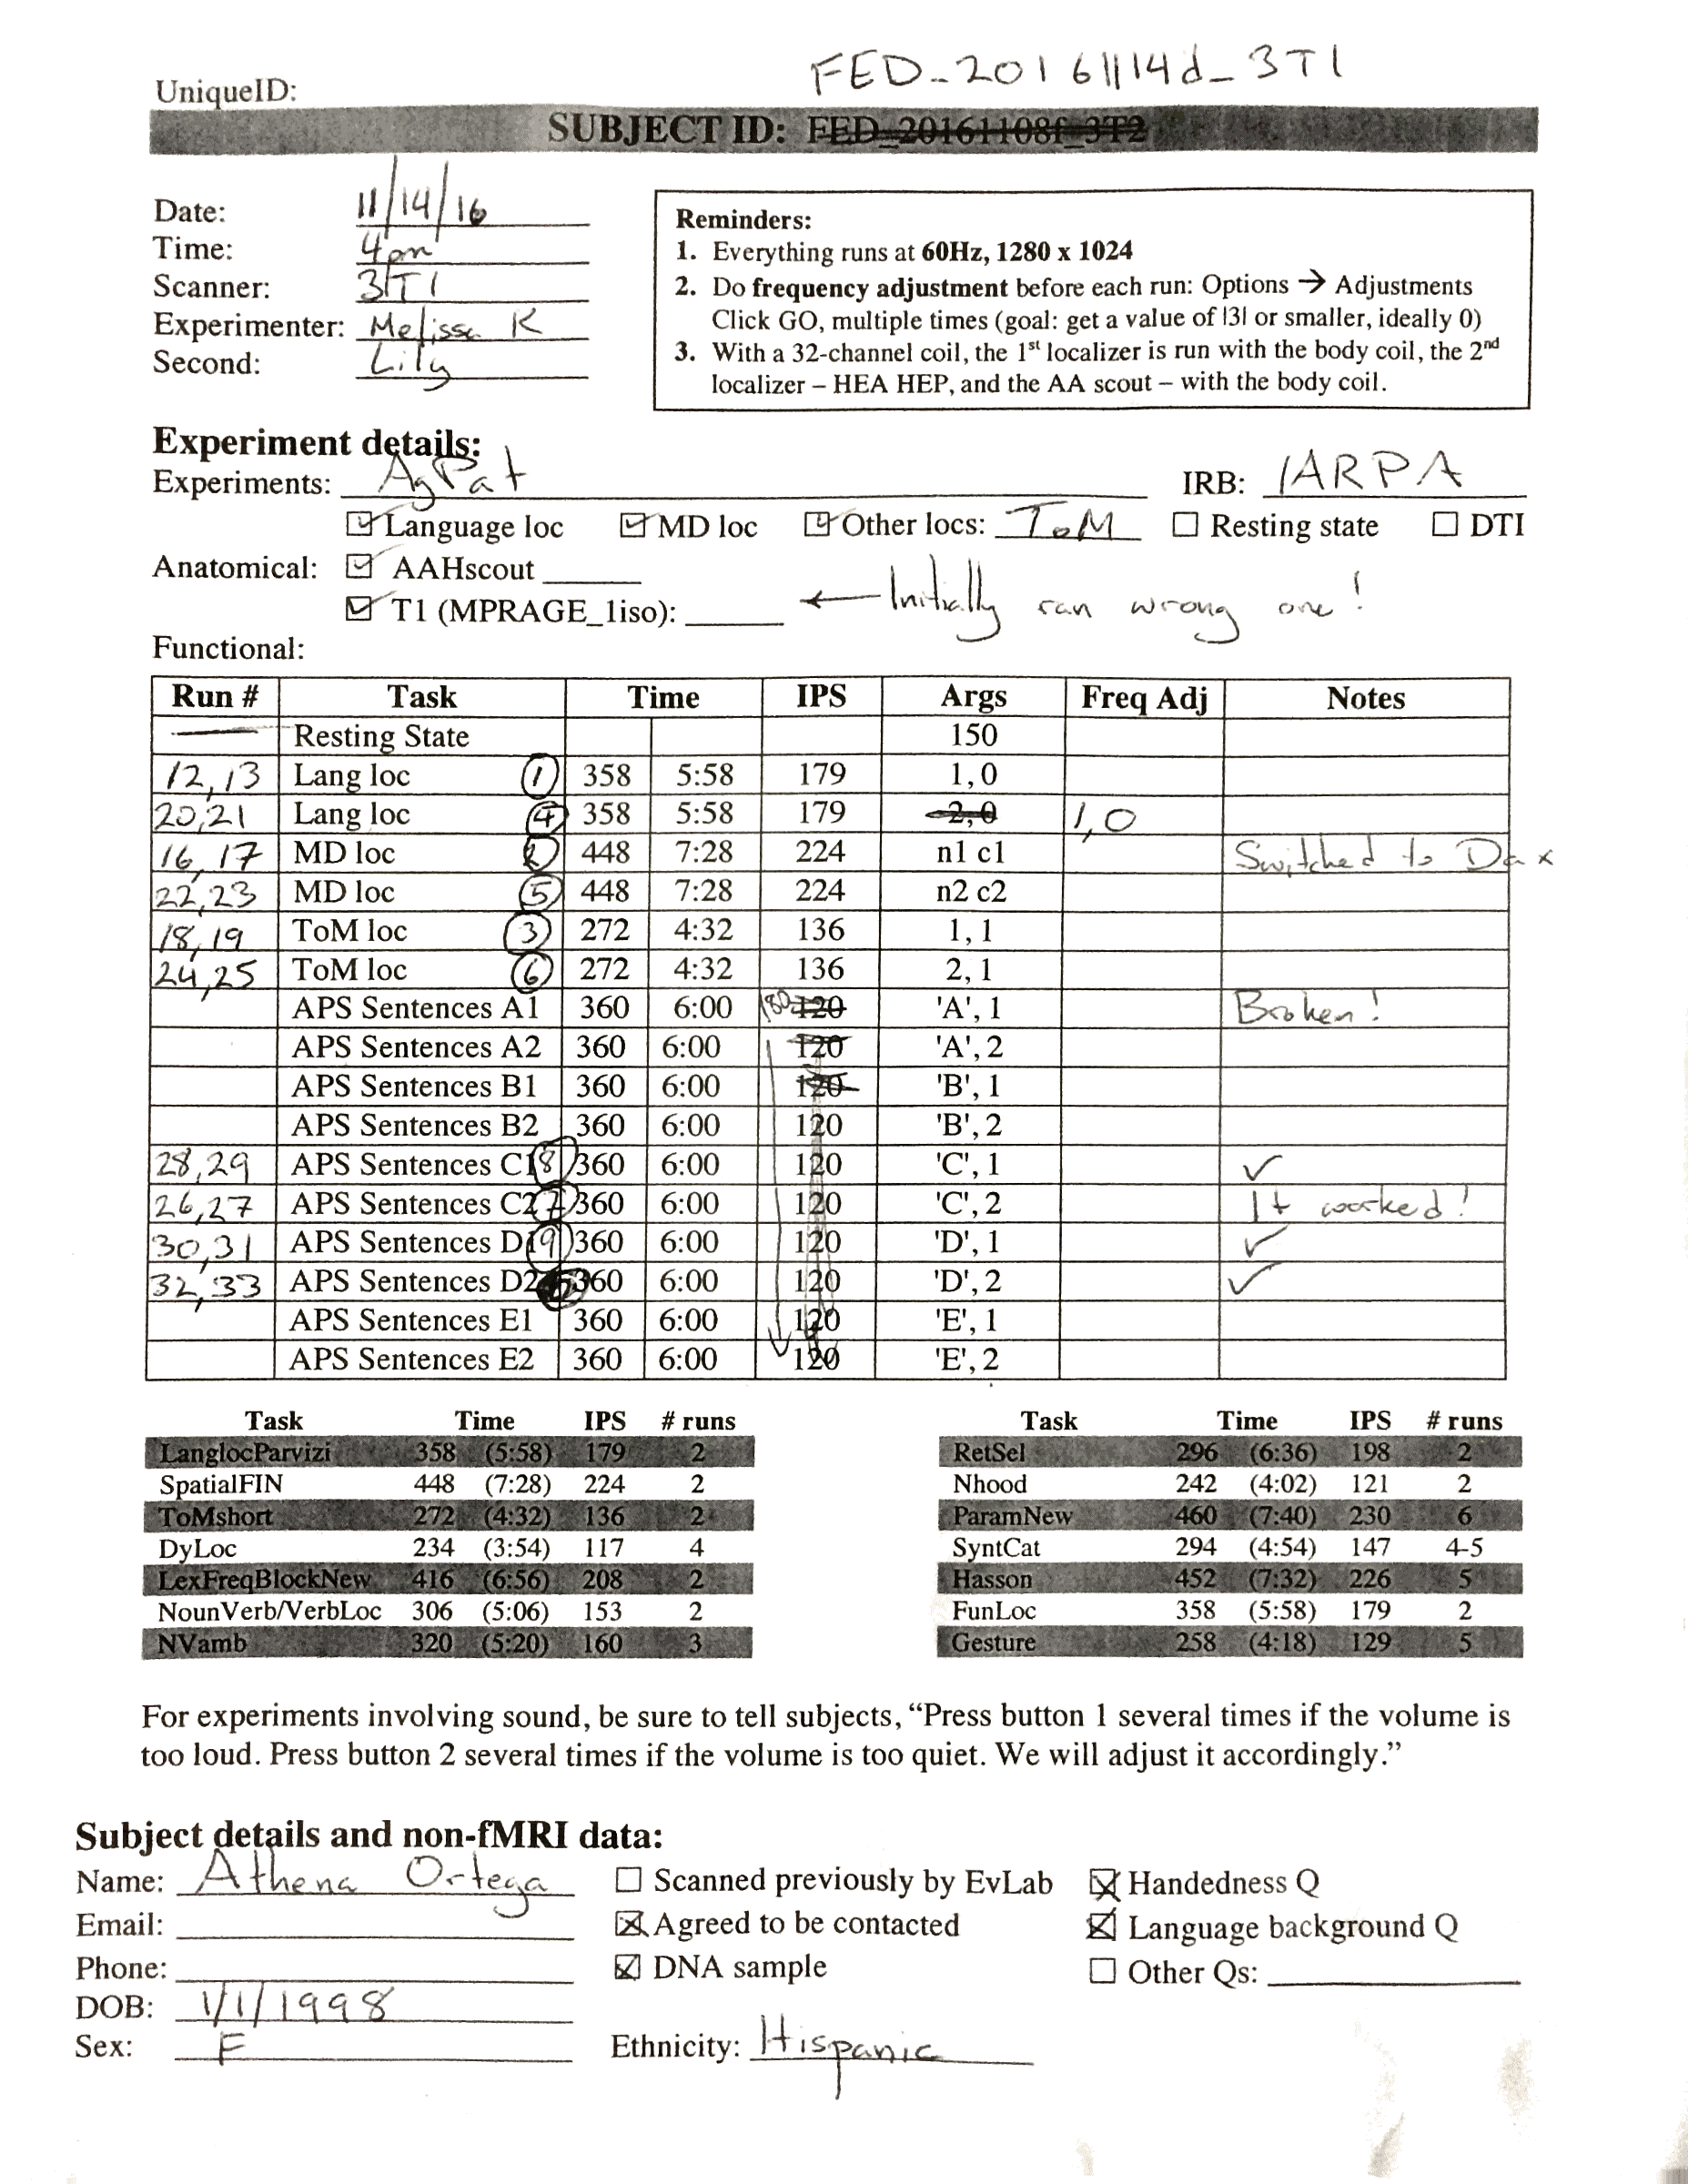 FED_20161114d_3T1
UniqueID:
SUBJECT ID: FED_20161108f_3T2
Date: 11/14/16
Time: 4pm
Scanner: 3T1
Experimenter: Melissa K
Second: Lily
Reminders:
1. Everything runs at 60Hz, 1280 x 1024
2. Do frequency adjustment before each run: Options → Adjustments
Click GO, multiple times (goal: get a value of |3| or smaller, ideally 0)
3. With a 32-channel coil, the 1st localizer is run with the body coil, the 2nd
localizer – HEA HEP, and the AA scout – with the body coil.
Experiment details:
Experiments: AgPat IRB: IARPA
☑ Language loc ☑ MD loc ☑ Other locs: ToM ☐ Resting state ☐ DTI
Anatomical: ☑ AAHscout
☑ T1 (MPRAGE_1iso): ← Initially ran wrong one!
Functional:
Run # Task Time IPS Args Freq Adj Notes
— Resting State 150
12,13 Lang loc 1 358 5:58 179 1,0
20,21 Lang loc 4 358 5:58 179 2,0 1,0
16,17 MD loc 2 448 7:28 224 n1 c1 Switched to Dax
22,23 MD loc 5 448 7:28 224 n2 c2
18,19 ToM loc 3 272 4:32 136 1, 1
24,25 ToM loc 6 272 4:32 136 2, 1
APS Sentences A1 360 6:00 180 120 'A', 1 Broken!
APS Sentences A2 360 6:00 120 'A', 2
APS Sentences B1 360 6:00 120 'B', 1
APS Sentences B2 360 6:00 120 'B', 2
28,29 APS Sentences C1 8 360 6:00 120 'C', 1 ✓
26,27 APS Sentences C2 7 360 6:00 120 'C', 2 It worked!
30,31 APS Sentences D1 9 360 6:00 120 'D', 1 ✓
32,33 APS Sentences D2 360 6:00 120 'D', 2 ✓
APS Sentences E1 360 6:00 120 'E', 1
APS Sentences E2 360 6:00 120 'E', 2
Task Time IPS # runs
LanglocParvizi 358 (5:58) 179 2
SpatialFIN 448 (7:28) 224 2
ToMshort 272 (4:32) 136 2
DyLoc 234 (3:54) 117 4
LexFreqBlockNew 416 (6:56) 208 2
NounVerb/VerbLoc 306 (5:06) 153 2
NVamb 320 (5:20) 160 3
Task Time IPS # runs
RetSel 296 (6:36) 198 2
Nhood 242 (4:02) 121 2
ParamNew 460 (7:40) 230 6
SyntCat 294 (4:54) 147 4-5
Hasson 452 (7:32) 226 5
FunLoc 358 (5:58) 179 2
Gesture 258 (4:18) 129 5
For experiments involving sound, be sure to tell subjects, “Press button 1 several times if the volume is
too loud. Press button 2 several times if the volume is too quiet. We will adjust it accordingly.”
Subject details and non-fMRI data:
Name: Athena Ortega ☐ Scanned previously by EvLab ☒ Handedness Q
Email: ☒ Agreed to be contacted ☒ Language background Q
Phone: ☒ DNA sample ☐ Other Qs:
DOB: 1/1/1998
Sex: F Ethnicity: Hispanic